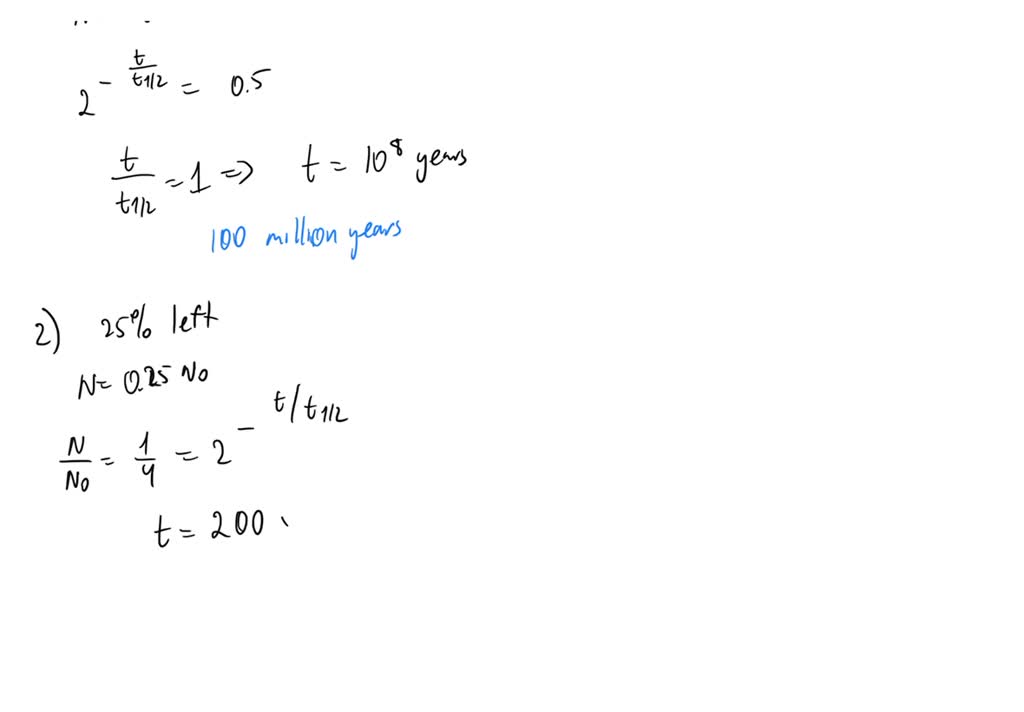 2^{-t/t1/2} = 0.5
t/t1/2 = 1 => t = 10^8 years
100 million years
2) 25% left
N= 0.25 No
N/No = 1/4 = 2^{-t/t1/2}
t = 200